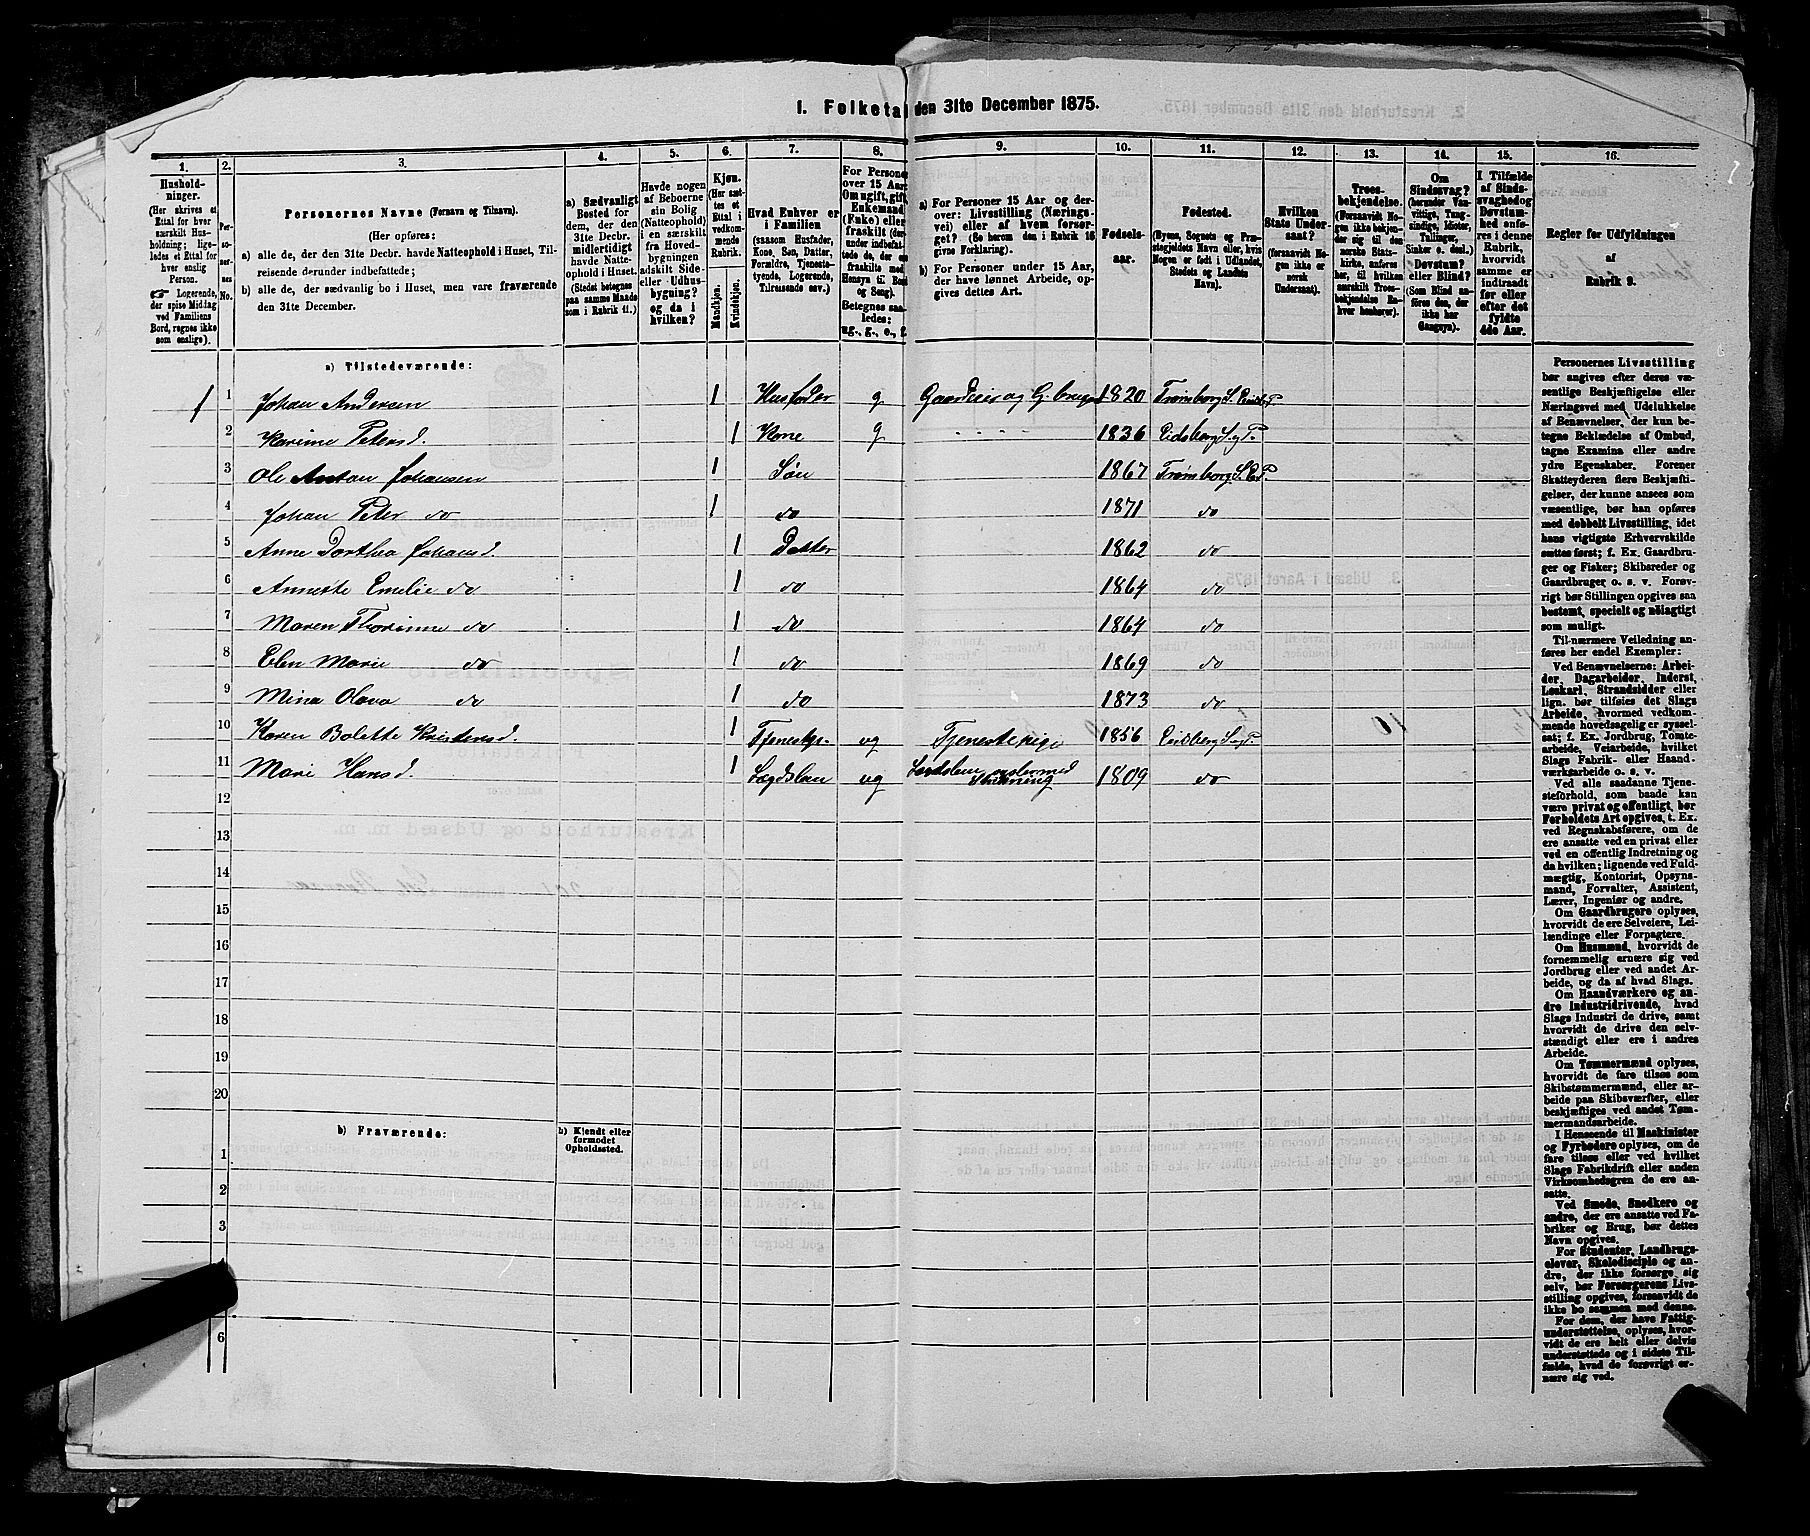 1. Folketal den 31te December 1875.
1. 2. 3. 4. 5. 6. 7. 8. 9. 10. 11. 12. 13. 14. 15. 16.
Hushold-
ninger.
(Her skrives et
Ettal for hver
særskilt Hus-
holdning; lige-
ledes et Ettal for
hver enslig
Person.
☞ Logerende,
der spise Middag
ved Familiens
Bord, regnes ikke
som enslige).
Personernes Navne (Fornavn og Tilnavn).
(Her opføres:
a) alle de, der den 31te Decbr. havde Natteophold i Huset, Til-
reisende derunder indbefattede;
b) alle de, der sædvanlig bo i Huset, men vare fraværende
den 31te December.
a) Sædvanligt
Bosted for
dem, der den
31te Decbr.
midlertidigt
havde Natte-
ophold i Huset.
(Stedet betegnes
paa samme Maade
som i Rubrik 11.)
Havde nogen
af Beboerne
sin Bolig
(Natteophold)
i en særskilt
fra Hoved-
bygningen
adskilt Side-
eller Udhus-
bygning?
og da i
hvilken?
Kjøn.
(Her sæt-
tes et
Ettal i
vedkom-
mende
Rubrik.
Mandkjøn.
Kvindekjøn.
Hvad Enhver er
i Familien
(saasom Husfader,
Kone, Søn, Datter,
Forældre, Tjeneste-
tyende, Logerende,
Tilreisende osv.)
For Personer
over 15 Aar:
Om ugift, gift,
Enkemand
(Enke) eller
fraskilt
Betegnes saa-
ledes:
ug., g., e., f.
a) For Personer 15 Aar og der-
over: Livsstilling (Nærings-
vei) eller af hvem forsør-
get? (Se herom den i Rubrik 16
givne Forklaring).
b) For Personer under 15 Aar,
der have lønnet Arbeide, op-
gives dettes Art.
Fødsels-
aar.
Fødested.
(Byens, Sognets og Præ-
stegjeldets Navn eller, hvis
Nogen er født i Udlandet,
Stedets og Landets
Navn).
Hvilken
Stats Under-
saat?
(forsaavidt No-
gen ikke er
norsk
Undersaat).
Troes-
bekjendelse.
(Forsaavidt No-
gen ikke bekjen-
der sig til den
norske Stats-
kirke, anføres
her, til hvilken
særskilt Troes-
bekjendelse En-
hver henhører).
Om
Sindssvag?
(herunder Van-
vittige, Tung-
sindige, Idioter,
Tullinger,
Sinker o. desl.)
Om Døvstum
eller Blind?
(Som Blind an-
føres den, der
ikke har
Gangsyn).
I Tilfælde
af Sinds-
svaghed og
Døvstum-
hed anfø-
res i denne
Rubrik,
hvorvidt
samme er
indtraadt
før eller
efter det
fyldte
4de Aar.
Regler for Udfyldningen
af
Rubrik 9.
a) Tilstedeværende:
1 1 Johan Andersen 1 Husfader g Gaardeier og G. bruger 1820 Trømborg S. Eidsb. P.
2 Karine Petersd. 1 Kone g 1836 Eidsberg S. og P.
3 Ole Anton Johansen 1 Søn 1867 Trømborg S. E. P.
4 Johan Peter do 1 do 1871 do
5 Anne Dorthea Johansd. 1 Datter 1862 do
6 Annette Emelie do 1 do 1864 do
7 Maren Thorinne do 1 do 1864 do
8 Elen Marie do 1 do 1869 do
9 Mina Olava do 1 do 1873 do
10 Karen Bolette Kristensd. 1 Tjenestp. ug Tjenestepige 1856 Eidsberg S. og P.
11 Mari Hansd. 1 Lægdslem ug Lægdslem 1809 do
12
13
14
15
16
17
18
19
20
b) Fraværende:
b) Kjendt eller
formodet
Opholdssted.
1
2
3
6
Personernes Livsstilling
bør angives efter deres væ-
sentlige Beskjæftigelse eller
Næringsvei med Udelukkelse
af Benævnelser, der kun be-
tegne Beklædelse af Ombud,
tagne Examina eller andre
ydre Egenskaber. Forener
Skatteyderen flere Beskjæfti-
gelser, der kunne ansees som
væsentlige, bør han opføres
med dobbelt Livsstilling, idet
hans vigtigste Erhvervskilde
sættes først; f. Ex. Gaardbru-
ger og Fisker; Skibsreder og
Gaardbruger o. s. v. Forøv-
rigt bør Stillingen opgives saa
bestemt, specielt og nøiagtigt
som muligt.
Til nærmere Veiledning an-
føres her endel Exempler:
Ved Benævnelserne: Arbei-
der, Dagarbeider, Inderst,
Løskarl, Strandsidder eller
lign. bør tilføies det Slags
Arbeide, hvormed vedkom-
mende hovedsagelig er syssel-
sat; f. Ex. Jordbrug, Tomte-
arbeide, Veiarbeide, hvilket
Slags Fabrik- eller Haand-
værksarbeide o. s. v.
Ved alle saadanne Tjene-
steforhold, som baade kan
være privat og offentligt, bør
Forholdets Art opgives, t. Ex.
ved Regnskabsførere, om de
ere ansatte ved en privat eller
ved en offentlig Indretning og
da hvilken; lignende ved Fuld-
mægtig, Kontorist, Opsyns-
mand, Forvalter, Assistent,
Lærer, Ingeniør og andre.
Om Gaardbrugere oplyses,
hvorvidt de ere Selveiere, Lei-
lændinge eller Forpagtere.
Om Husmænd, hvorvidt de
fornemmelig ernære sig ved
Jordbrug eller ved andet Ar-
beide, og da af hvad Slags.
Om Haandværkere og an-
dre Industridrivende, hvad
Slags Industri de drive, samt
hvorvidt de drive den selv-
stændigt eller ere i andres
Arbeide.
Om Tømmermænd oplyses,
hvorvidt de fare tilsøs som
Skibstømmermænd, eller ar-
beide paa Skibsværfter, eller
beskjæftiges ved andet Tøm-
mermandsarbeide.
I Henseende til Maskinister
og Fyrbødere oplyses, om de
fare tilsøs eller ved hvilket
Slags Fabrikdrift eller anden
Virksomhedsgren de ere an-
satte.
Ved Smede, Snedkere og
andre, der ere ansatte ved Fa-
briker og Brug, bør dettes
Navn opgives.
For Studenter, Landbrugs-
elever, Skoledisciple og an-
dre, der ikke forsørge sig
selv, bør Forsørgerens Livs-
stilling opgives, forsaavidt de
ikke bo sammen med denne.
For dem, der have Fattig-
understøttelse, oplyses, hvor-
vidt de ere helt eller delvis
understøttede og i sidste Til-
fælde, hvad de forøvrigt er-
nære sig ved.